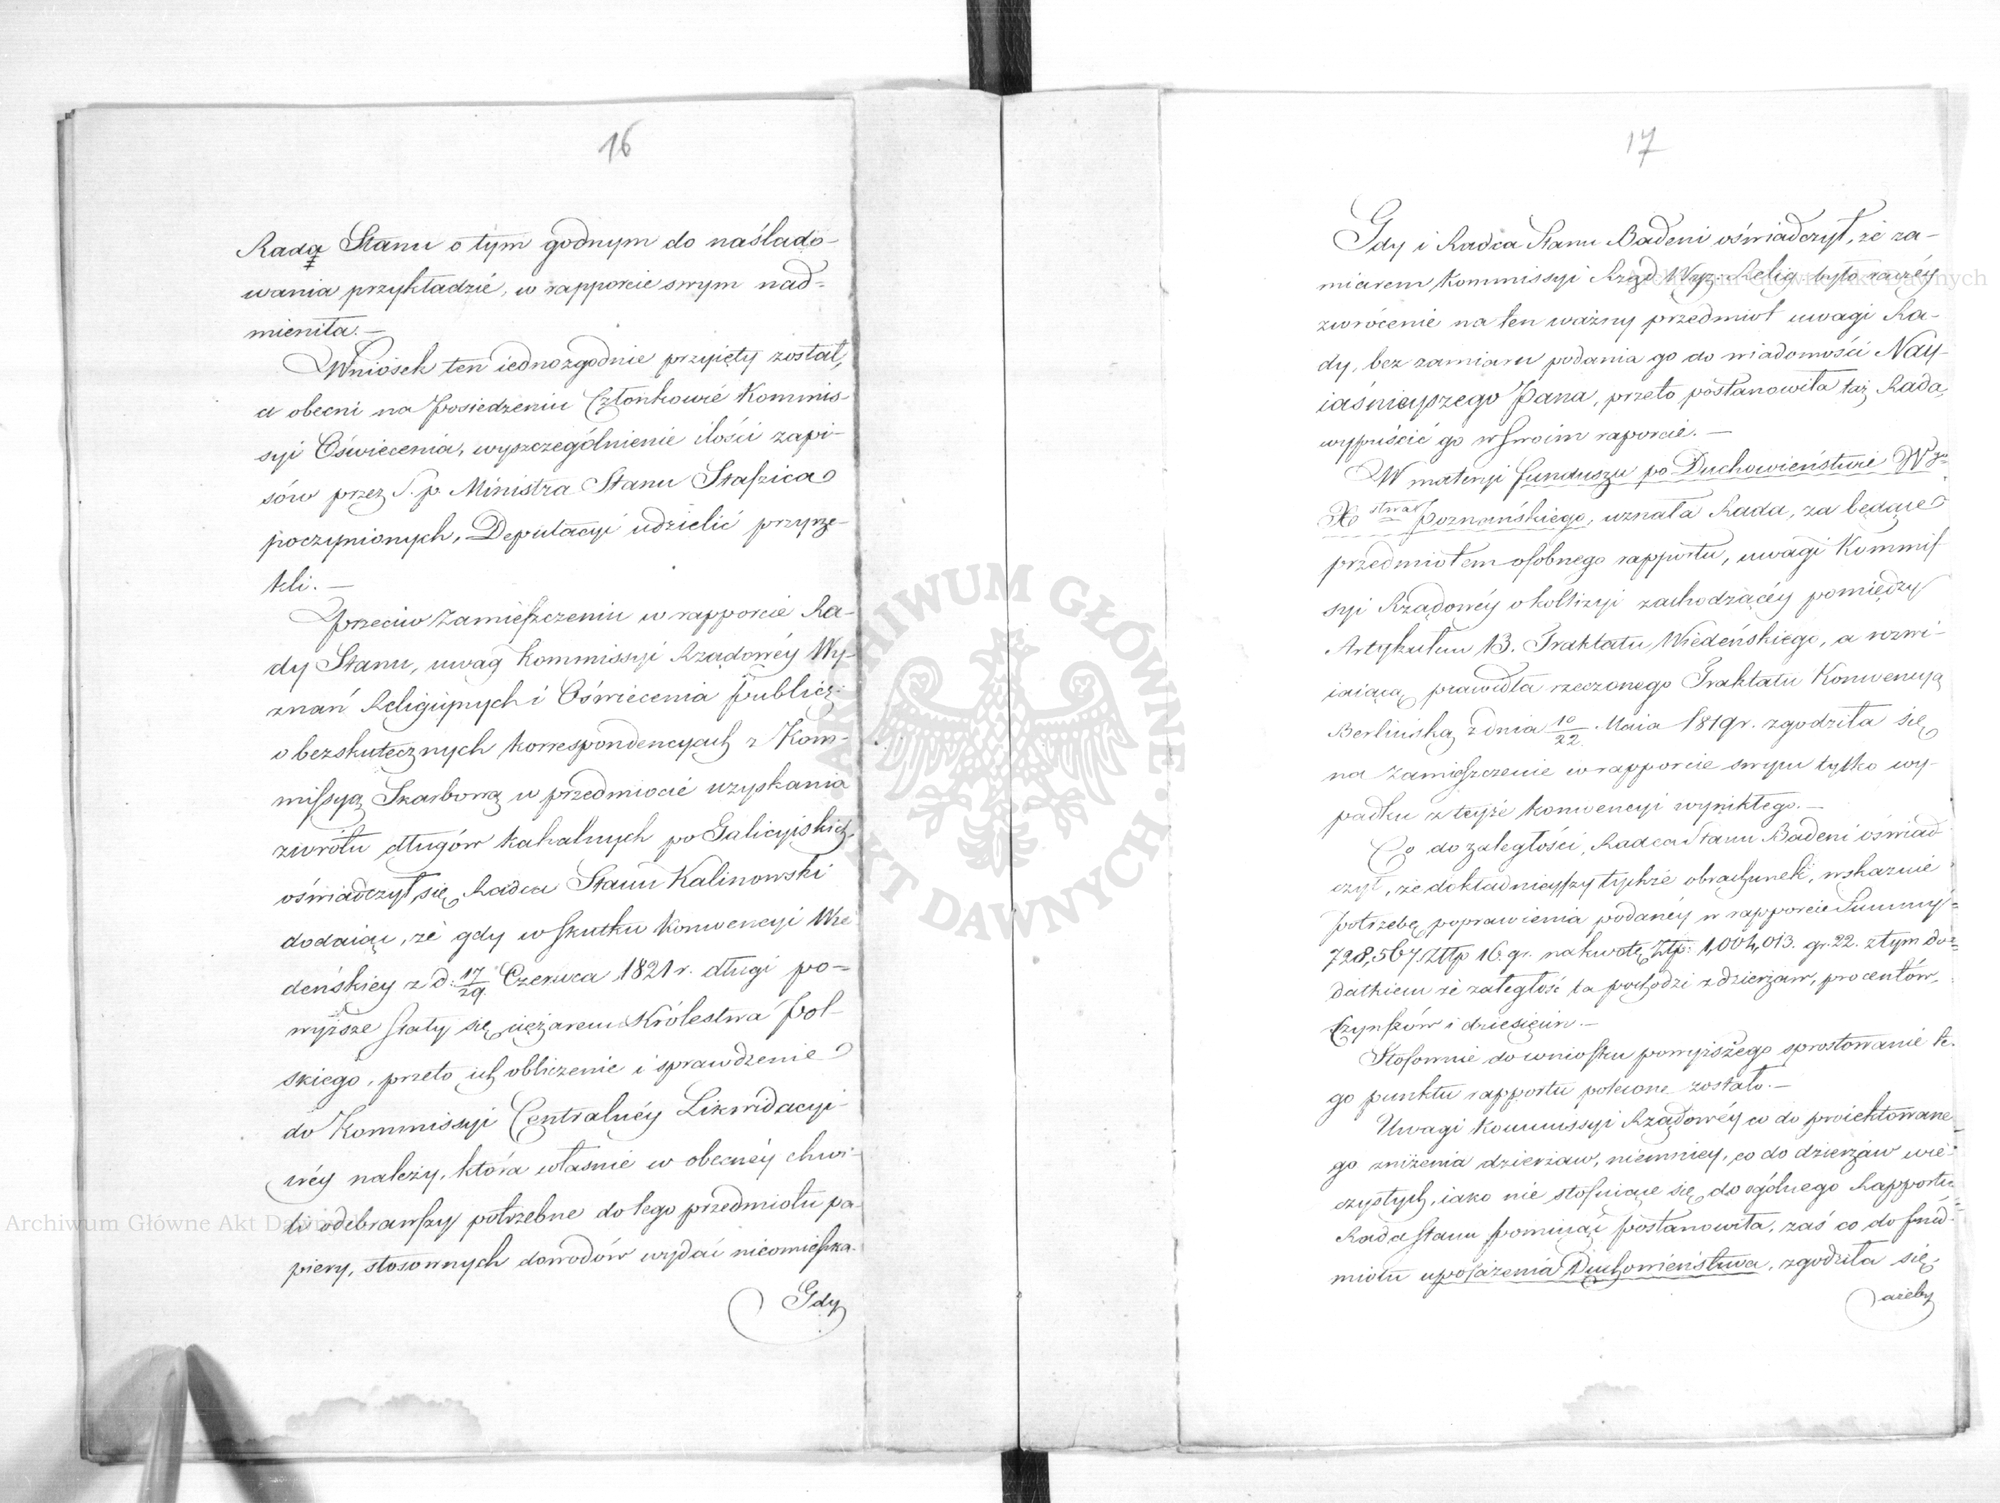 16
Radą Stanu o tym godnym do naślado-
wania przykładzie, w rapporcie swym nad-
mieniła. —
Wniosek ten iednozgodnie przyięty został,
a obecni na Posiedzeniu Członkowie Kommis-
syi Oświecenia, wyszczególnienie ilości zapi-
sów przez S. p. Ministra Stanu Staszica
poczynionych, Deputacyi udzielić przyrze-
kli. —
Przeciw zamieszczeniu w rapporcie Ra-
dy Stanu, uwag Kommissyi Rządowéy Wy-
znań Religiynych i Oświecenia Publicz:
o bezskutecznych korrespondencyach z Kom-
missyą Skarbową w przedmiocie uzyskania
zwrotu długów kahalnych po Galicyiskich,
oświadczył się Radca Stanu Kalinowski
dodaiąc, że gdy w skutku Konwencyi Wie
deńskiey z d: 17/29 Czerwca 1821 r. długi po-
wyższe stały się ciężarem Królestwa Pol-
skiego, przeto ich obliczenie i sprawdzenie
do Kommissyi Centralnéy Likwidacyi-
néy należy, która właśnie w obecnéy chwi-
li odebrawszy potrzebne do tego przedmiotu pa-
piery, stosownych dowodów wydać nieomieszka.
Gdy
17
Gdy i Radca Stanu Badeni oświadczył, że za-
miarem Kommissyi Rząd. Wyz: Relig. było raczéy
zwrócenie na ten ważny przedmiot uwagi Ra-
dy, bez zamiaru podania go do wiadomości Nay-
iaśnieyszego Pana, przeto postanowiła taż Rada,
wypuścić go w swoim raporcie. —
W materyi funduszu po Duchowieństwie Wgo
Xstwa Poznańskiego, uznała Rada, za będące
przedmiotem osobnego rapportu, uwagi Kommis
syi Rządowéy o kollizyi zachodzącéy pomiędzy
Artykułem 13. Traktatu Wiedeńskiego, a rozwi-
iaiącą prawidła rzeczonego Traktatu Konwencyą
Berlińską z dnia 10/22. Maia 1819 r. zgodziła się
na zamieszczenie w rapporcie swym tylko wy-
padku z teyże konwencyi wynikłego. —
Co do zaległości, Radca Stanu Badeni oświad
czył, że dokładnieyszy tychże obrachunek, wskazuie
potrzebę poprawienia podanéy w rapporcie Summy
728,567 Złtp 16. gr. na kwotę Złp: 1,004,013. gr. 22. z tym do-
datkiem że zaległość ta pochodzi z dzierżaw, procentów,
czynszów i dziesięcin. —
Stosownie do wniosku powyższego sprostowanie te-
go punktu rapportu polecone zostało. —
Uwagi Kommissyi Rządowéy co do proiektowane
go zniżenia dzierżaw, niemniey, co do dzierżaw wie-
czystych, iako nie stosuiące się do ogólnego Rapportu
Rada Stanu pominąć postanowiła, zaś co do przed-
miotu uposażenia Duchowieństwa, zgodziła się,
ażeby
Archiwum Główne Akt Dawnych
Archiwum Główne Akt Dawnych
ARCHIWUM GŁÓWNE AKT DAWNYCH